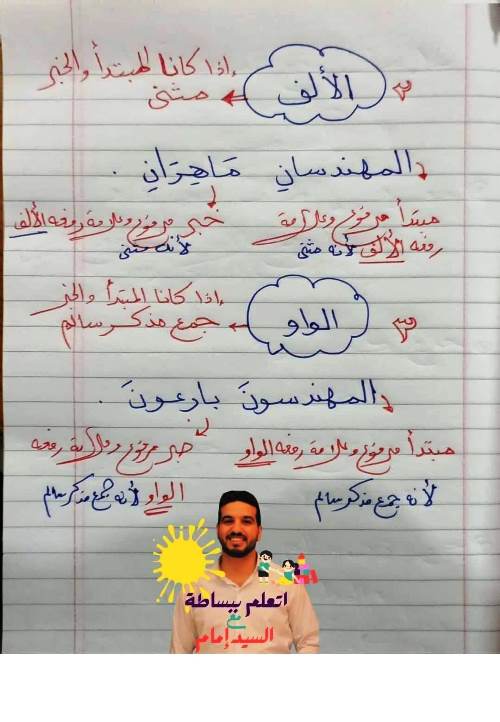 ٢ الألف إذا كانا المبتدأ والخبر
مثنى
المهندسانِ مَاهِرَانِ .
مبتدأ مرفوع وعلامة
رفعه الألف لأنه مثنى
خبر مرفوع وعلامة رفعه الألف
لأنه مثنى
٣ الواو إذا كانا المبتدأ والخبر
جمع مذكر سالم
المهندسونَ بارعونَ .
مبتدأ مرفوع وعلامة رفعه الواو
لأنه جمع مذكر سالم
خبر مرفوع وعلامة رفعه
الواو لأنه جمع مذكر سالم
اتعلم ببساطة
مع
السيد إمام